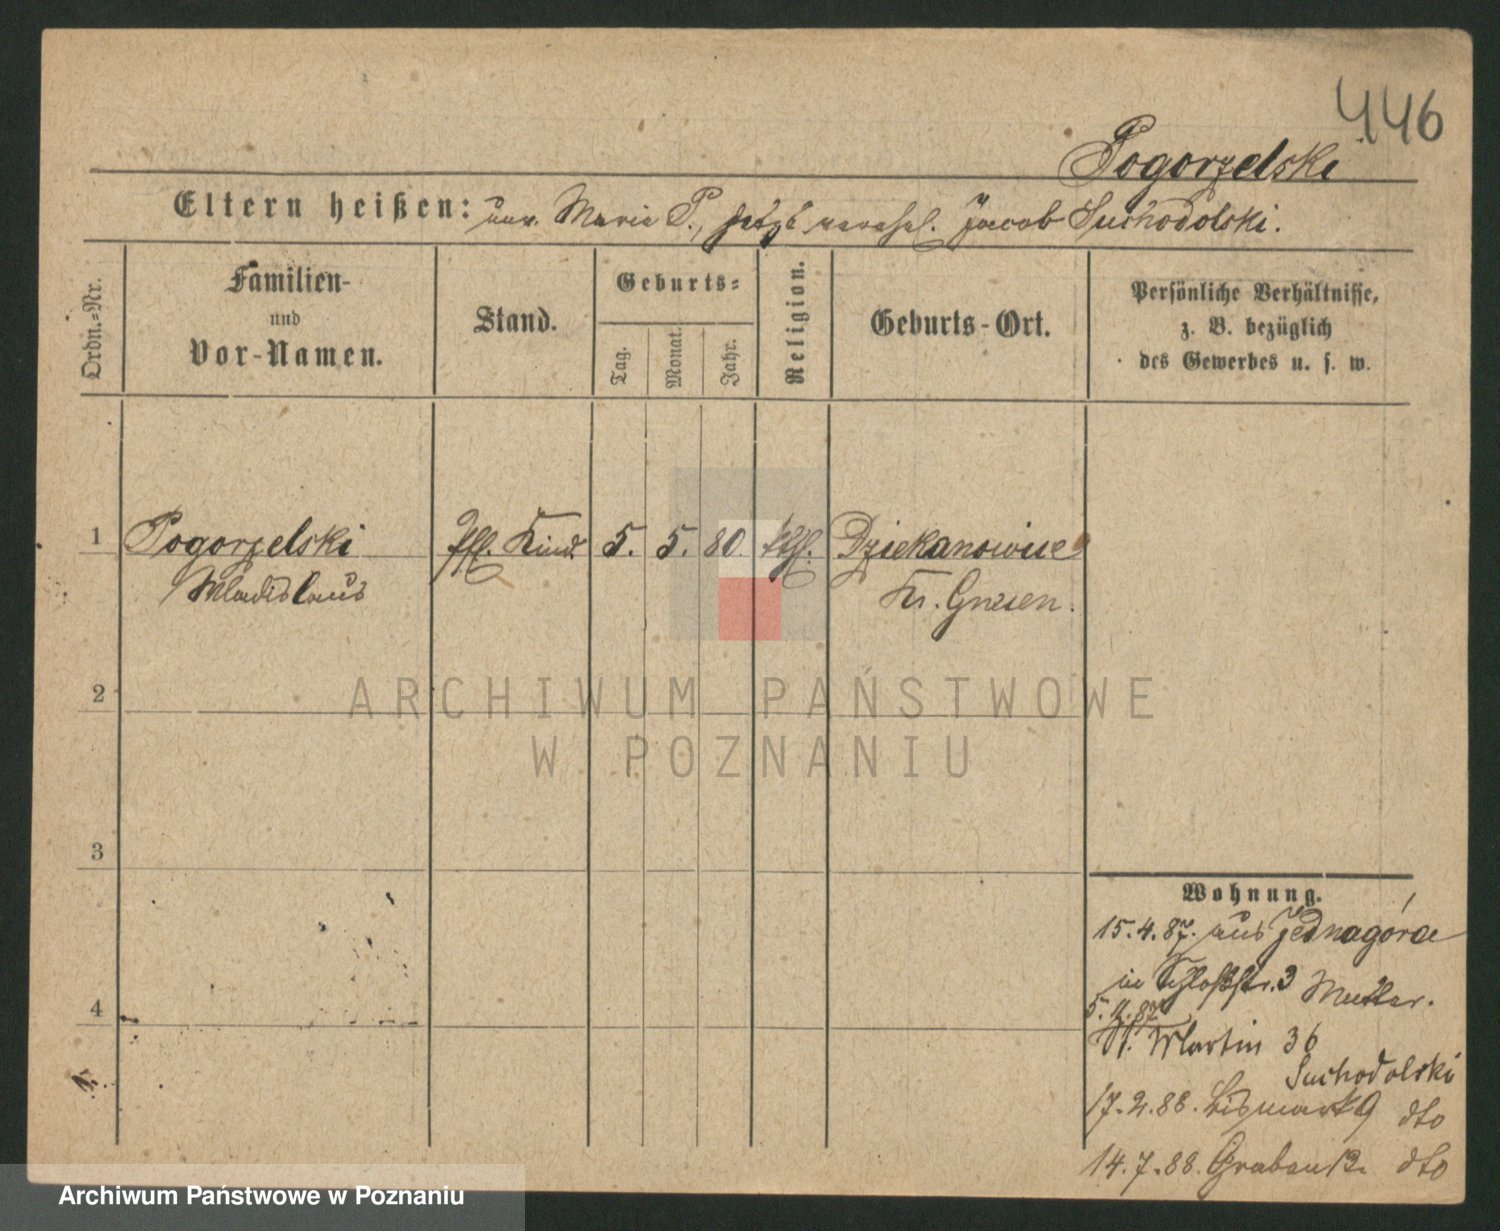 446
Pogorzelski
Eltern heißen: unv. Marie P., jetzt verehel. Jacob Suchodolski.
Ordn.-Nr.
Familien-
und
Vor-Namen.
Stand.
Geburts-
Tag.
Monat.
Jahr.
Religion.
Geburts-Ort.
Persönliche Verhältnisse,
z. B. bezüglich
des Gewerbes u. s. w.
1 Pogorzelski Pfl. Kind 5. 5. 80 kthl. Dziekanowice
Wladislaus Kr. Gnesen.
2
ARCHIWUM PAŃSTWOWE
W POZNANIU
3
Wohnung.
15.4.87. aus Jednagóra
in Schloßstr. 3 Mutter.
4
5.11.87
St. Martin 36
Suchodolski
17.2.88. Bismark 9 dto
14.7.88. Graben 12. dto
Archiwum Państwowe w Poznaniu